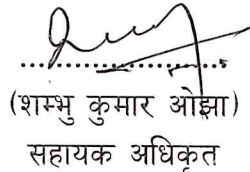 (शम्भु कुमार ओझा)
सहायक अधिकृत